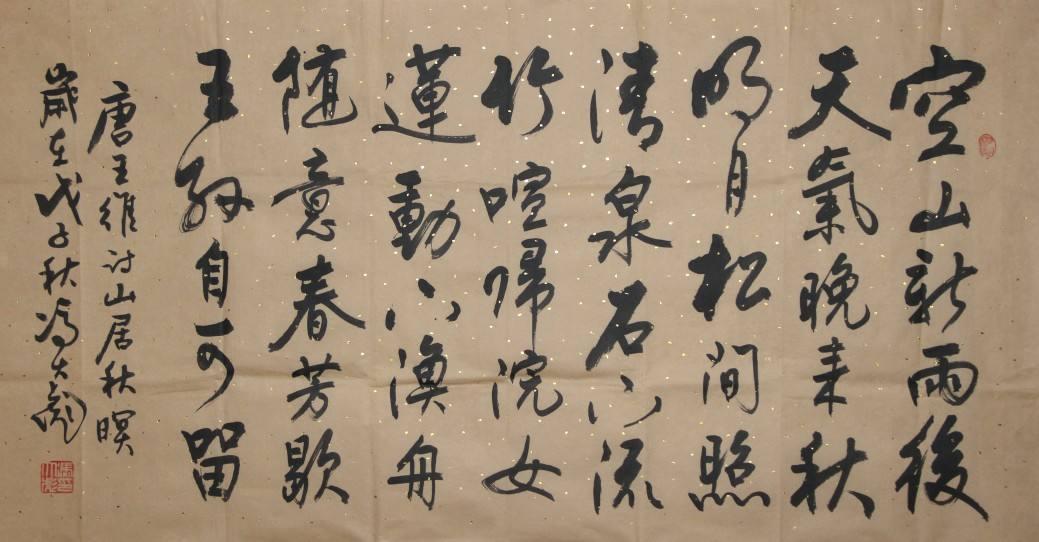 空山新雨後
天氣晚来秋
明月松間照
清泉石上流
竹喧歸浣女
蓮動下漁舟
随意春芳歇
王孙自可留
唐王維诗山居秋暝
歲在戊子秋冯大彪